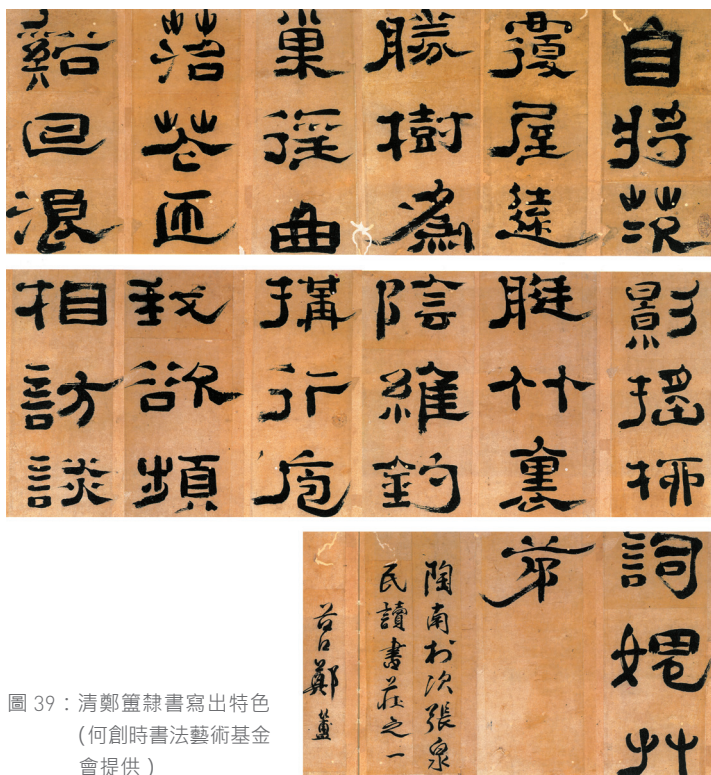 自將茨
覆屋還
勝樹為
巢徑曲
落花匝
谿回浪
影搖柳
艇竹裏
陰維釣
搆行庖
我欲頻
相訪談
詞媿艸
茅
陶南村次張泉
民讀書莊之一
谷口鄭簠
圖 39：清鄭簠隸書寫出特色
(何創時書法藝術基金
會提供)